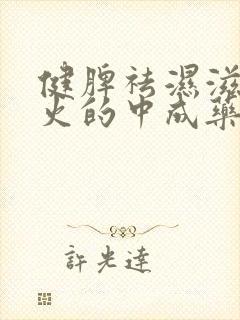 健脾祛濕滋
火的中成藥
許光達